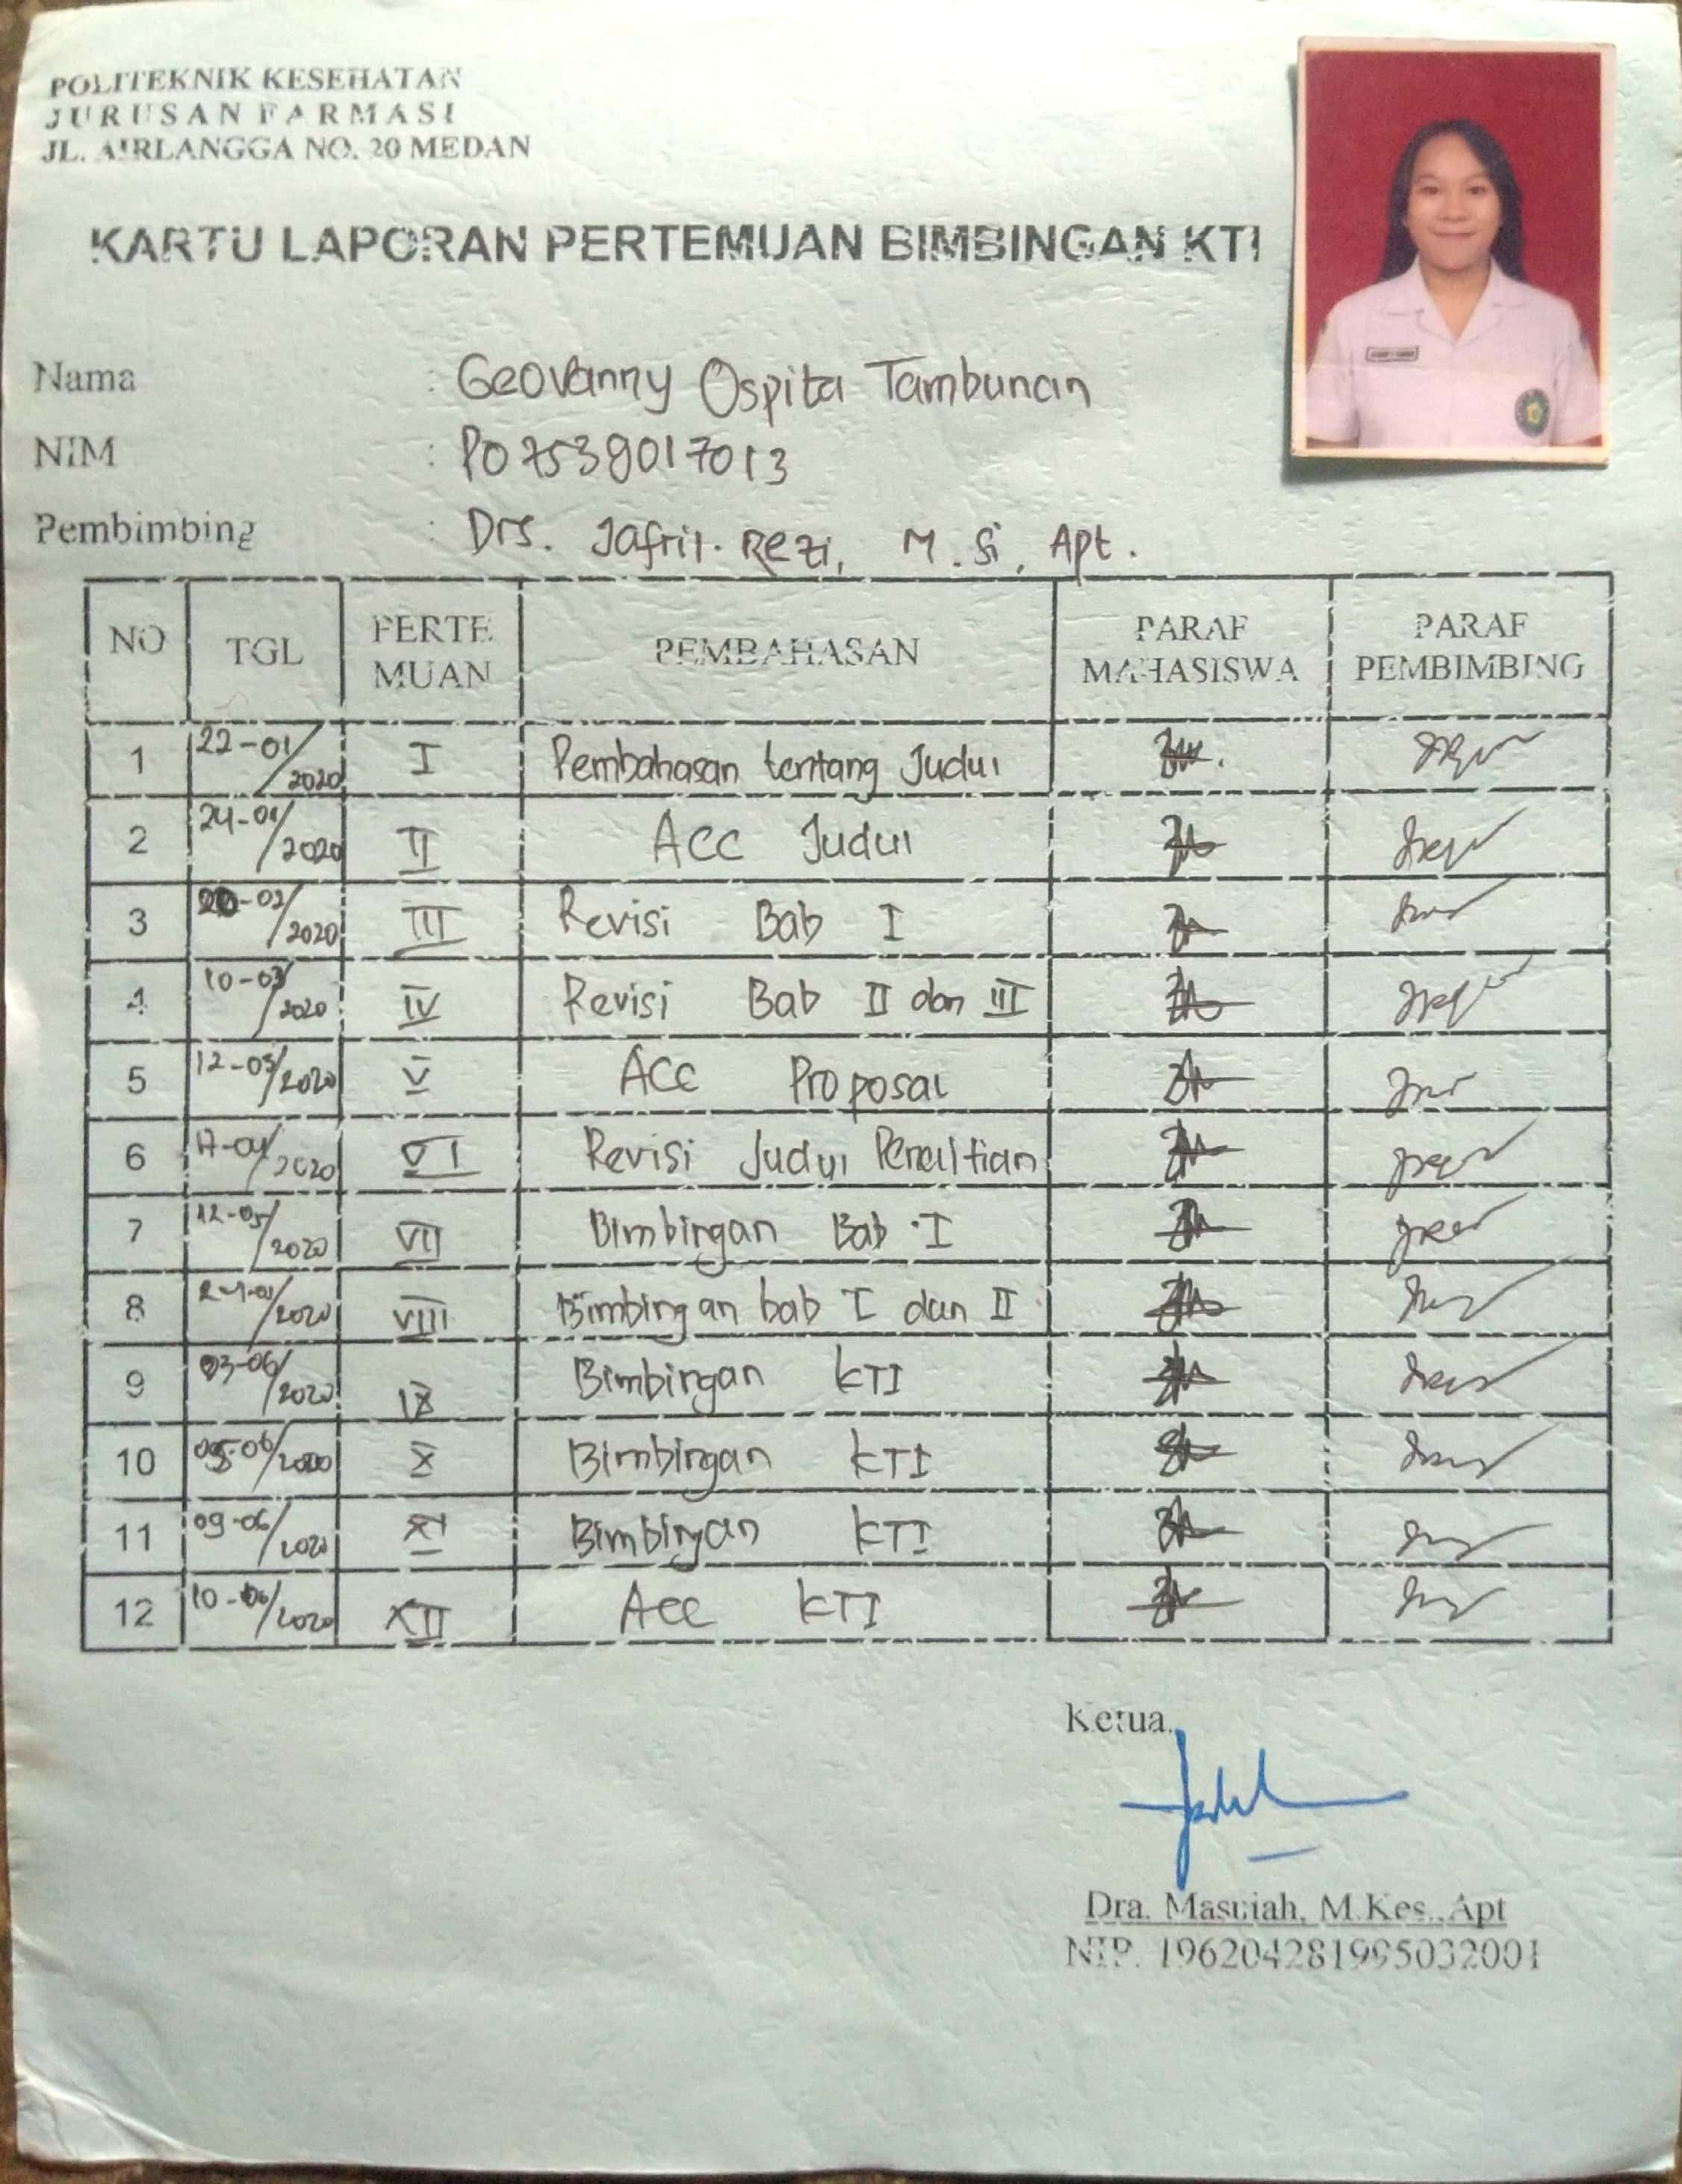 POLITEKNIK KESEHATAN
JURUSAN FARMASI
JL. AIRLANGGA NO. 20 MEDAN
KARTU LAPORAN PERTEMUAN BIMBINGAN KTI
Nama : Geovanny Ospita Tambunan
NIM : P07539017013
Pembimbing : Drs. Jafril Rezi, M.Si, Apt.
NO TGL PERTE MUAN PEMBAHASAN PARAF MAHASISWA PARAF PEMBIMBING
1 22-01/2020 I Pembahasan tentang Judul
2 24-01/2020 II Acc Judul
3 /2020 III Revisi Bab I
4 10-03/2020 IV Revisi Bab II dan III
5 12-03/2020 V Acc Proposal
6 17-04/2020 VI Revisi Judul Penelitian
7 12-05/2020 VII Bimbingan Bab I
8 /2020 VIII Bimbingan bab I dan II
9 03-06/2020 IX Bimbingan KTI
10 05-06/2020 X Bimbingan KTI
11 09-06/2020 XI Bimbingan KTI
12 10-06/2020 XII Acc KTI
Ketua,
Dra. Masniah, M.Kes., Apt
NIP. 196204281995032001